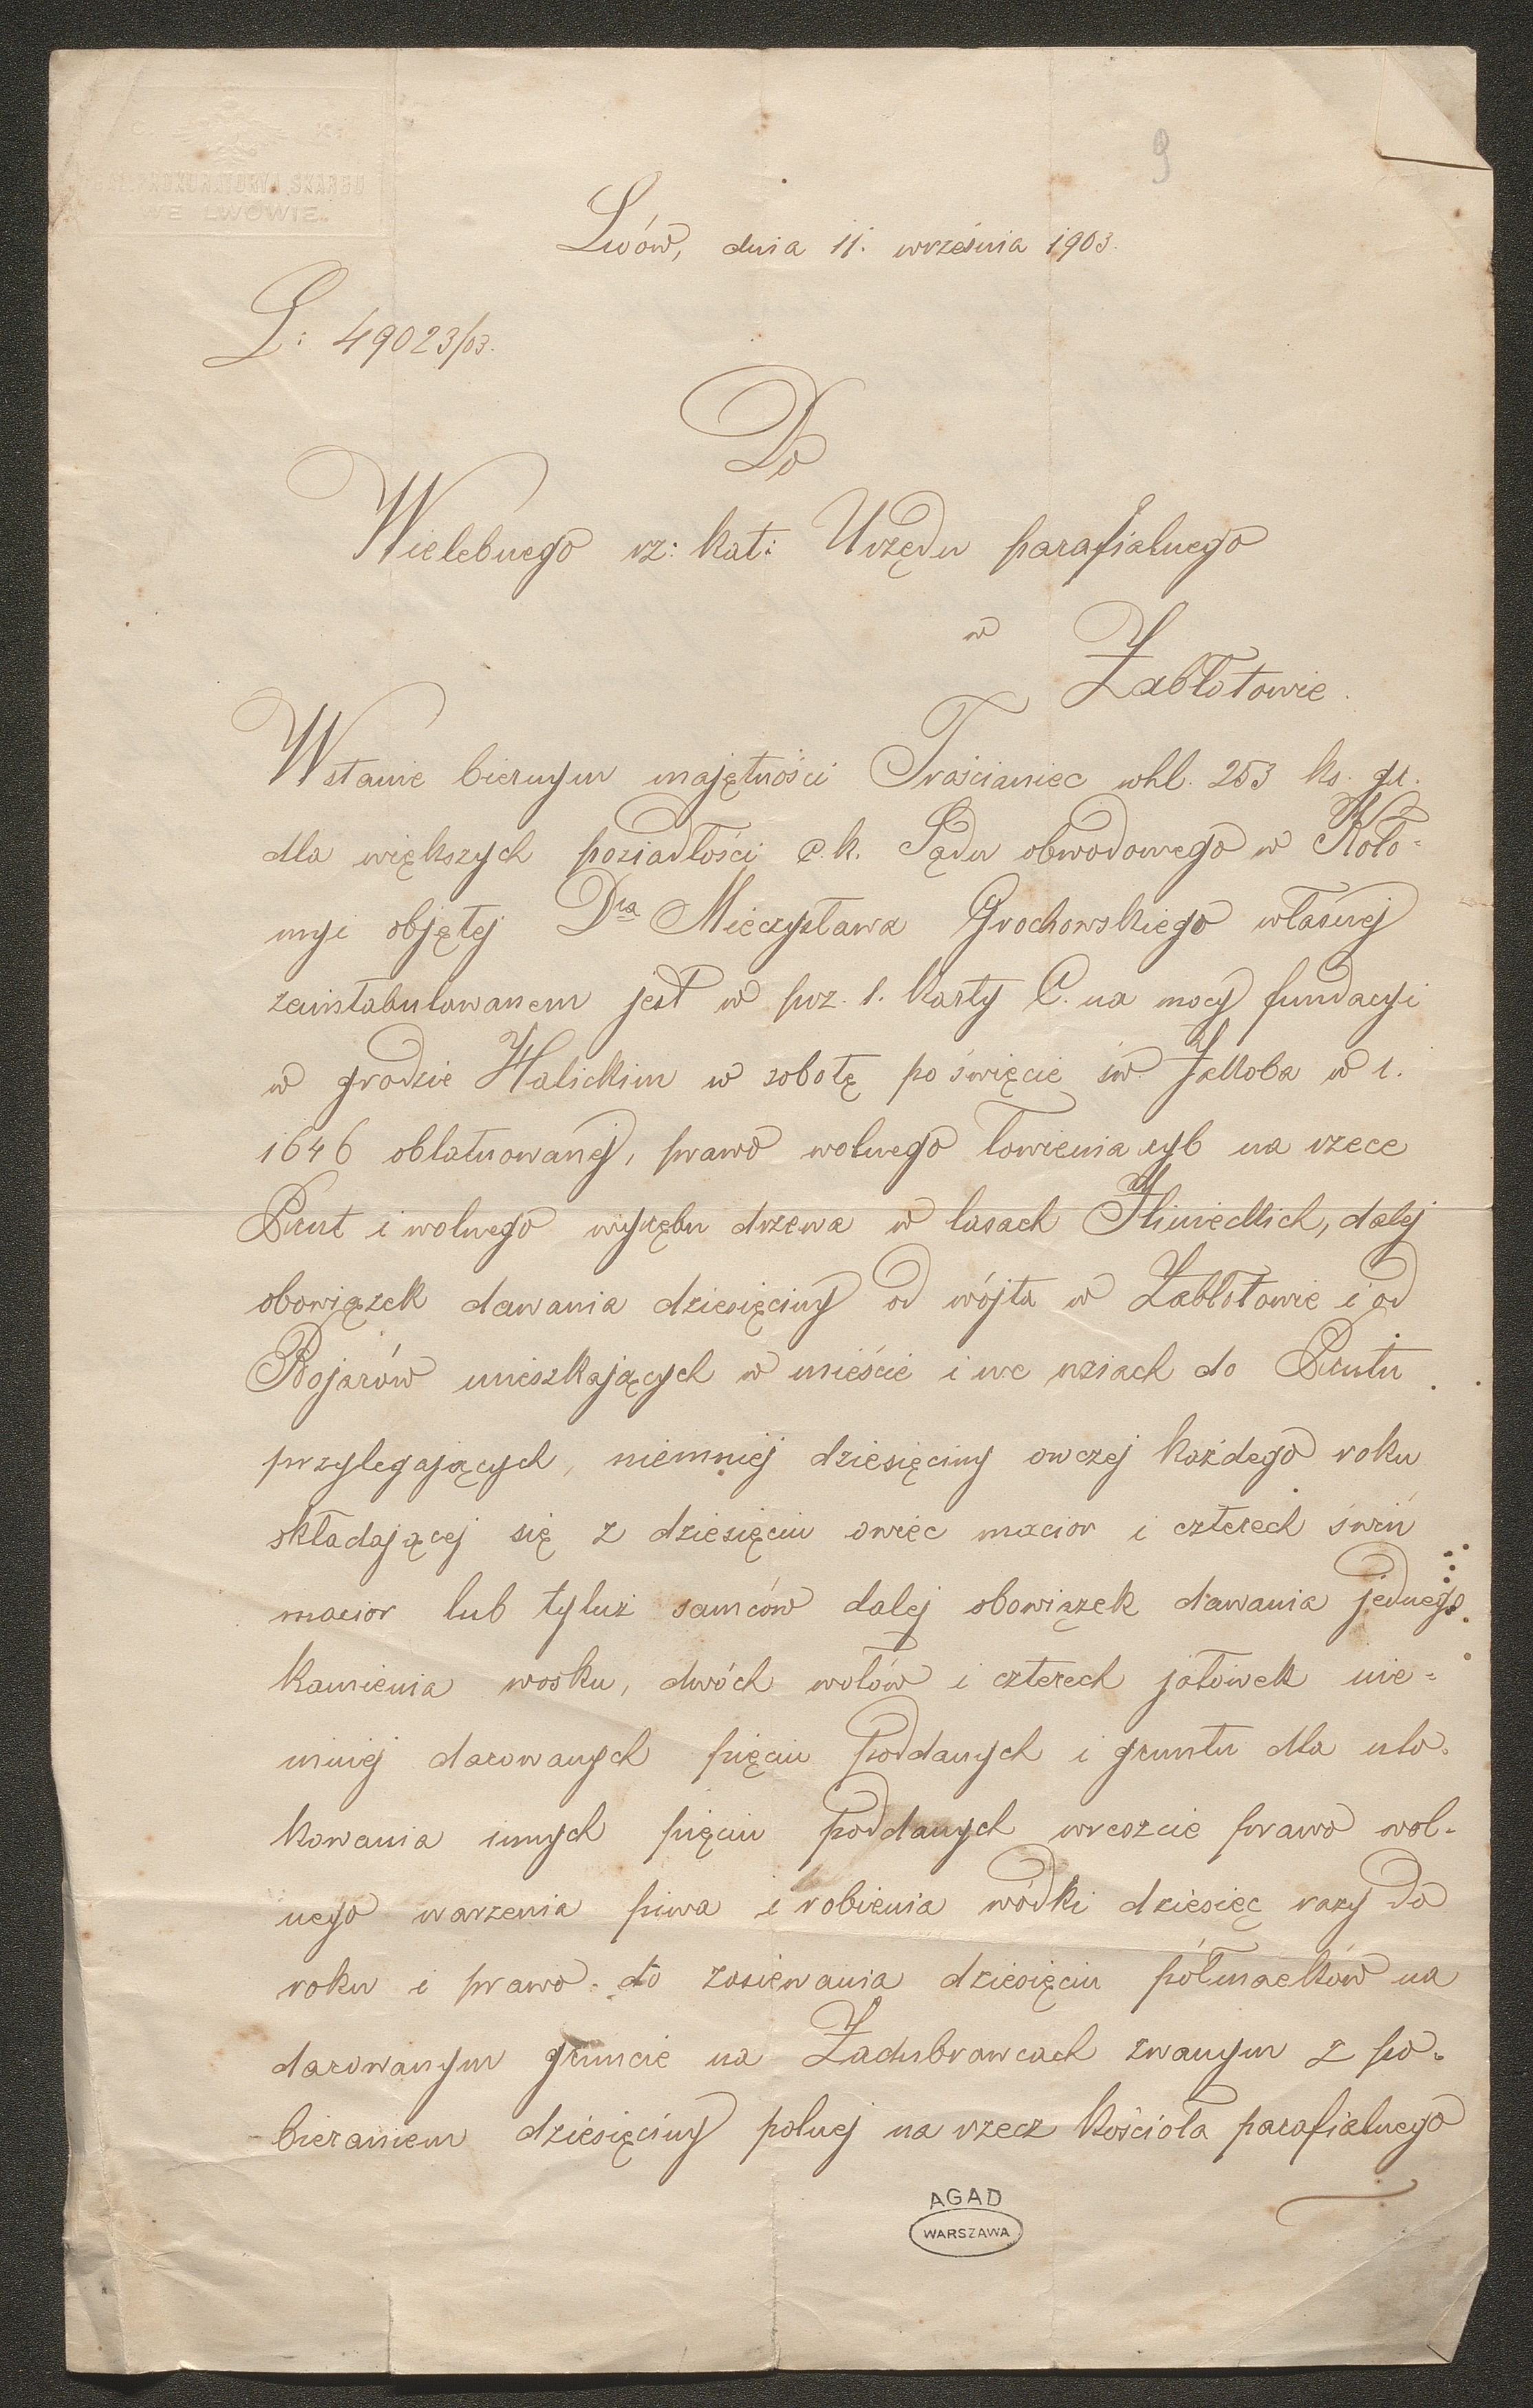 C. K.
GAL. PROKURATORYA SKARBU
WE LWOWIE.
9
Lwów, dnia 11. września 1903.
L: 49023/03.
Do
Wielebnego rz: kat: Urzędu parafialnego
w
Zabłotowie.
W stanie biernym majętności Trościaniec whl. 253 ks. gr.
dla większych posiadłości c. k. Sądu obwodowego w Koło-
myi objętej Dra Mieczysława Grochowskiego własnej
zaintabulowanem jest w poz. 1. karty C. na mocy fundacyi
w grodzie Halickim w sobotę po święcie św. Jakoba w r.
1646 oblatnowanej, prawo wolnego łowienia ryb na rzece
Prut i wolnego wyrębu drzewa w lasach Ilinieckich, dalej
obowiązek dawania dziesięciny od wójta w Zabłotowie i od
Bojarów mieszkających w mieście i we wsiach do Prutu
przylegających, niemniej dziesięciny owczej każdego roku
składającej się z dziesięciu owiec macior i czterech świń
macior lub tyluż samców dalej obowiązek dawania jednego
kamienia wosku, dwóch wołów i czterech jałówek nie-
mniej darowanych pięciu poddanych i gruntu dla ulo-
kowania innych pięciu poddanych wreszcie prawo wol-
nego warzenia piwa i robienia wódki dziesięć razy do
roku i prawo do zasiewania dziesięciu półmacków na
darowanym gruncie na Zadubrawcach zwanym z po-
bieraniem dziesięciny polnej na rzecz kościoła parafialnego
AGAD
WARSZAWA